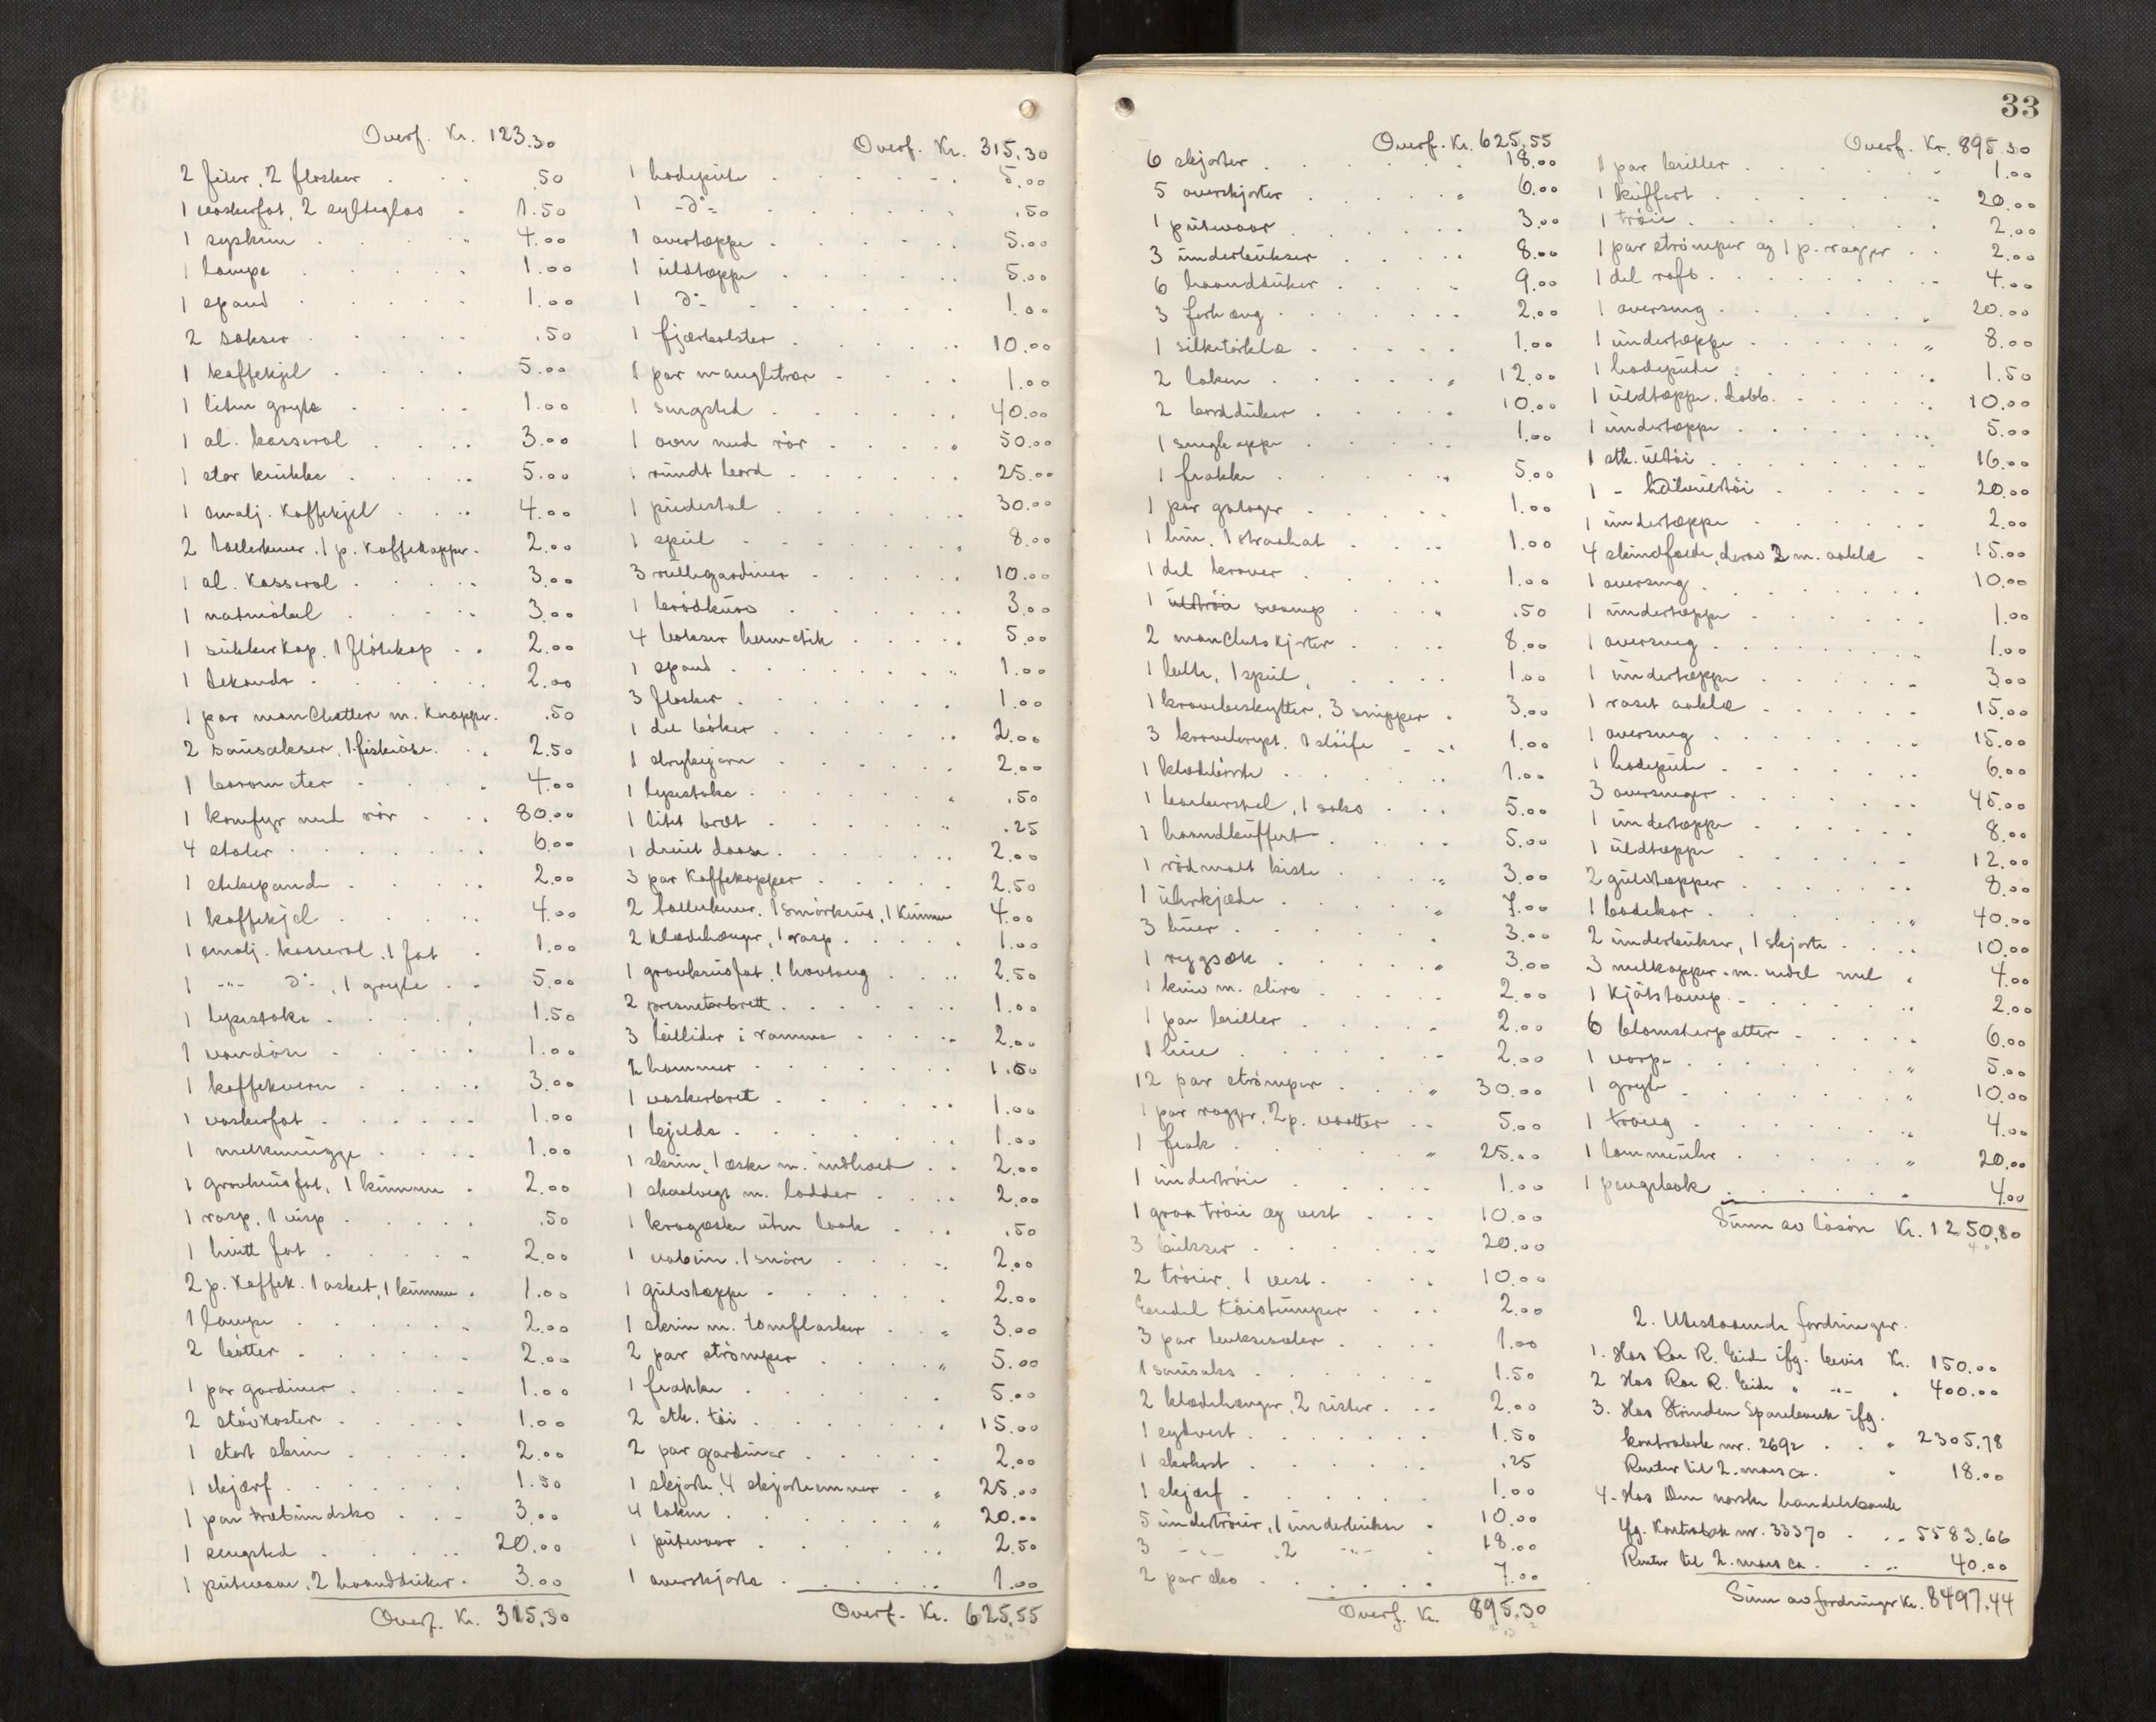 Overf. Kr. 123.30
2 filer, 2 flasker . . . .50
1 vaskerfat, 2 sylteglas . 1.50
1 syskrin . . . . 4.00
1 lampe . . . . 1.00
1 spand . . . . 1.00
2 sakser . . . . .50
1 kaffekjel . . . . 5.00
1 liten gryte . . . . 1.00
1 al. kasserol . . . . 3.00
1 stor krukke . . . . 5.00
1 emalj. Kaffekjel . . . 4.00
2 tallerkener, 1 p. Kaffekopper . 2.00
1 al. Kasserol . . . . 3.00
1 natmöbel . . . . 3.00
1 sukkerkop, 1 flötekop . . 2.00
1 tekande . . . . 2.00
1 par manchetter m. Knapper . .50
2 sausakser, 1 fiskeöse . . 2.50
1 barometer . . . . 4.00
1 komfyr med rör . . . 80.00
4 stoler . . . . 6.00
1 stekepande . . . . 2.00
1 kaffekjel . . . . 4.00
1 emalj. kasserol, 1 fat . 1.00
1 -"- do, 1 gryte . . 5.00
1 lysestake . . . . 1.50
1 vandöse . . . . 1.00
1 kaffekvern . . . . 3.00
1 vaskerfat . . . . 1.00
1 melkemugge . . . . 1.00
1 gravhusfat, 1 kumme . 2.00
1 rasp, 1 visp . . . . .50
1 hvitt fat . . . . 2.00
2 p. Kaffek. 1 asket, 1 kumme . 1.00
1 lampe . . . . 2.00
2 bötter . . . . 2.00
1 par gardiner . . . . 1.00
2 stövkoster . . . . 1.00
1 stort skrin . . . . 2.00
1 skjærf . . . . 1.50
1 par træbundsko . . . 3.00
1 sengsted . . . . 20.00
1 putevaar, 2 haandduker . 3.00
Overf. Kr. 315.30
Overf. Kr. 315.30
1 hodepute . . . . 5.00
1 -do- . . . . .50
1 overtæppe . . . . 5.00
1 uldtæppe . . . . 5.00
1 do . . . . 1.00
1 fjærbolster . . . . 10.00
1 par mangletrær . . . . 1.00
1 sengsted . . . . 40.00
1 ovn med rör . . . . 50.00
1 rundt bord . . . . 25.00
1 piedestal . . . . 30.00
1 speil . . . . 8.00
3 rullegardiner . . . . 10.00
1 brödkurv . . . . 3.00
4 bokser hermetik . . . . 5.00
1 spand . . . . 1.00
3 flasker . . . . 1.00
1 del böker . . . . 2.00
1 strykejern . . . . 2.00
1 lysestake . . . . .50
1 litet bræt . . . . .25
1 dreiet daase . . . . 2.00
3 par Kaffekopper . . . . 2.50
2 tallerkener, 1 smörkrus, 1 Kumme 4.00
2 klædehenger, 1 rasp . . . 1.00
1 gravhusfat, 1 hovtang . . . 2.50
2 presneterbrett . . . . 1.00
3 billider i ramme . . . . 2.00
2 hammer . . . . 1.50
1 vaskerbret . . . . 1.00
1 kjelde . . . . 1.00
1 skrin, 1 æske m. indhold . . 2.00
1 skaalvegt m. lodder . . . 2.00
1 krageske uten laak . . . .50
1 vabein, 1 snöre . . . 2.00
1 gulvtæppe . . . . 2.00
1 skrin m. tomflasker . . 3.00
2 par strömper . . . . 5.00
1 frakke . . . . 5.00
2 stk. töi . . . . 15.00
2 par gardiner . . . . 2.00
1 skjorte, 4 skjorteemner . . 25.00
4 laken . . . . 20.00
1 putevaar . . . . 2.50
1 overskjorte . . . . 1.00
Overf. Kr. 625.55
33
Overf. Kr. 625.55
6 skjorter . . . . 18.00
5 overskjorter . . . . 6.00
1 putevaar . . . . 3.00
3 underbukser . . . . 8.00
6 haandduker . . . . 9.00
3 forhæng . . . . 2.00
1 silketörklæ . . . . 1.00
2 laken . . . . 12.00
2 bordduker . . . . 10.00
1 sengteppe . . . . 1.00
1 frakke . . . . 5.00
1 par galoger . . . . 1.00
1 hue, 1 straahat . . . 1.00
1 del kraver . . . . 1.00
1 ultröie svamp . . . .50
2 manchetskjorter . . . 8.00
1 belte, 1 speil . . . . 1.00
1 kravebeskytter, 3 snipper . 3.00
3 kravebryst, 1 slöife . . . 1.00
1 klædebörste . . . . 1.00
1 barberstel, 1 saks . . . 5.00
1 haandkuffert . . . . 5.00
1 rödmalt kiste . . . . 3.00
1 uhrkjæde . . . . 7.00
3 huer . . . . 3.00
1 rygsæk . . . . 3.00
1 kniv m. slire . . . . 2.00
1 par briller . . . . 2.00
1 hue . . . . 2.00
12 par strömper . . . 30.00
1 par ragger, 2 p. votter . . 5.00
1 frak . . . . 25.00
1 undertröie . . . . 1.00
1 graa tröie og vest . . . 10.00
3 bukser . . . . 20.00
2 tröier, 1 vest . . . . 10.00
Endel töistumper . . . 2.00
3 par buksesæler . . . . 1.00
1 sausaks . . . . 1.50
2 klædehænger, 2 rister . . . 2.00
1 sydvest . . . . 1.50
1 skokost . . . . .25
1 skjærf . . . . 1.00
5 undertröier, 1 underbukse . 10.00
3 -"- , 2 -"- . 18.00
2 par sko . . . . 7.00
Overf. Kr. 895.30
Overf. Kr. 895.30
1 par briller . . . . 1.00
1 kuffert . . . . 20.00
1 tröie . . . . 2.00
1 par strömper og 1 p. ragger . . 2.00
1 del raft . . . . 4.00
1 overseng . . . . 20.00
1 undertæppe . . . . 8.00
1 hodepute . . . . 1.50
1 uldtæppe, dobb. . . . 10.00
1 undertæppe . . . . 5.00
1 stk. ultöi . . . . 16.00
1 - halvultöi . . . . 20.00
1 undertæppe . . . . 2.00
4 skindfælde, derav 2 m. aaklæ . 15.00
1 overseng . . . . 10.00
1 undertæppe . . . . 1.00
1 overseng . . . . 1.00
1 undertæppe . . . . 3.00
1 roset aaklæ . . . . 15.00
1 overseng . . . . 15.00
1 hodepute . . . . 6.00
3 oversenger . . . . 45.00
1 undertæppe . . . . 8.00
1 uldtæppe . . . . 12.00
2 gulvtæpper . . . . 8.00
1 badekar . . . . 40.00
2 underbukser, 1 skjorte . . . 10.00
3 melkopper m. endel mel . 4.00
1 Kjötstamp . . . . 2.00
6 blomsterpotter . . . . 6.00
1 vorpe . . . . 5.00
1 gryte . . . . 10.00
1 traug . . . . 4.00
1 lommeuhr . . . . 20.00
1 pengebok . . . . 4.00
Sum av lösöre Kr. 1250.80
2. Utestaaende fordringer.
1. Hos Roe R. Eide ifg. bevis Kr. 150.00
2 Hos Roe R. Eide " -"- . 400.00
3. Hos Strinden Sparebank ifg.
kontrabok nr. 2692 . . " 2305.78
Renter til 2. mars ca. " 18.00
4. Hos Den norske handelsbank
ifg. Kontrabok nr. 33370 . . . 5583.66
Renter til 2. mars ca. . . . 40.00
Sum av fordringer Kr. 8497.44